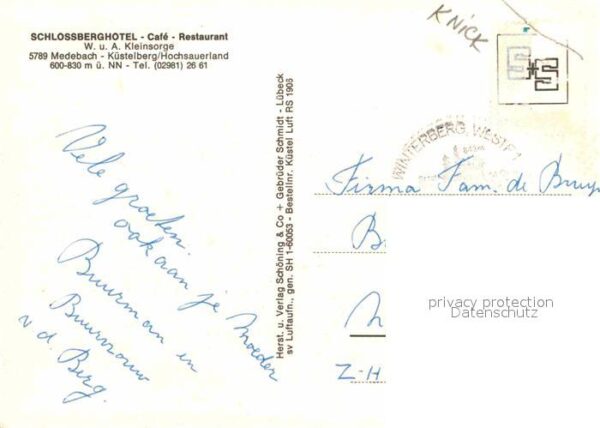 SCHLOSSBERGHOTEL - Café - Restaurant
W. u. A. Kleinsorge
5789 Medebach - Küstelberg/Hochsauerland
600-830 m ü. NN - Tel. (02981) 26 61
KNICK
Vele groeten.
ook aan je Moeder
Buurman en
Buurvrouw
v d. Berg.
Herst. u. Verlag Schöning & Co + Gebrüder Schmidt - Lübeck
sv Luftaufn., gen. SH 1-60053 - Bestellnr. Küstel Luft RS 1905
WINTERBERG, WESTF
Firma Fam. de Bruyn
B
privacy protection
Datenschutz
Z-H